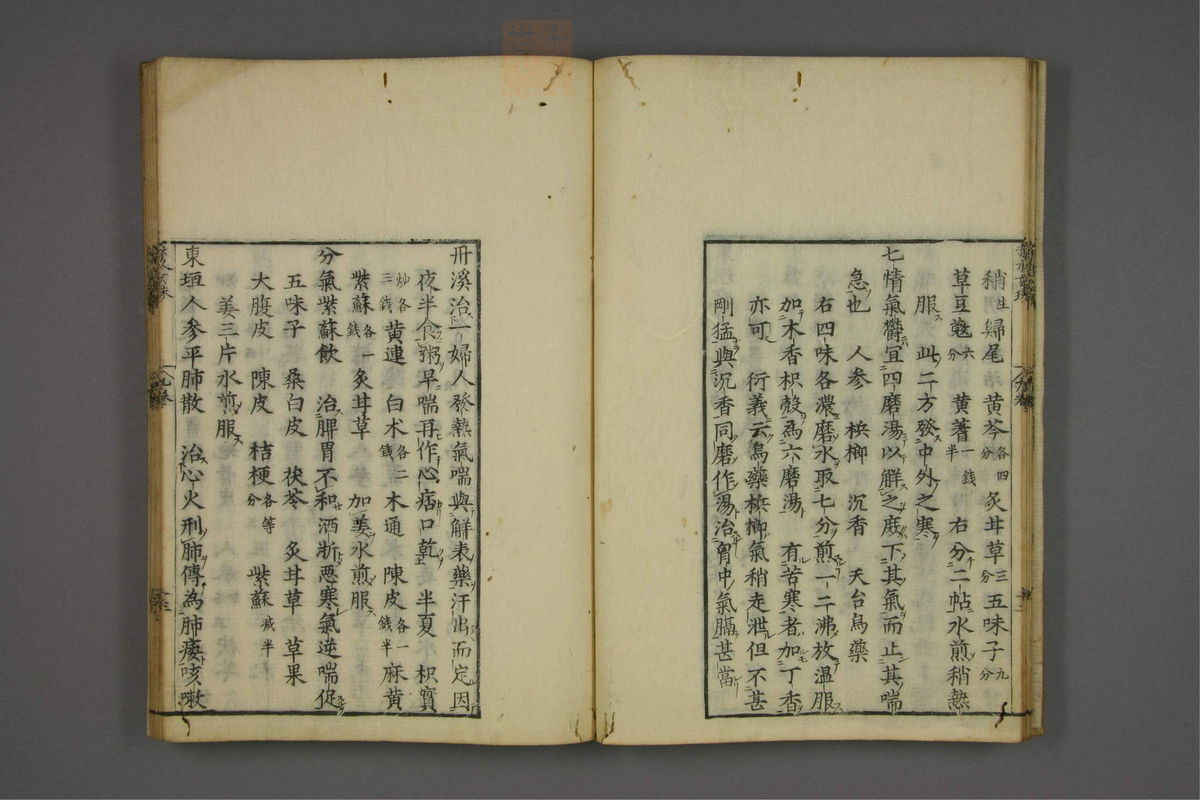 稍生歸尾 黃芩各四分炙甘草三分五味子九分
草豆蔻六分黃蓍一錢半 右分二帖水煎稍熱
服 此二方發中外之寒
七情氣欝宜四磨湯以觧之庻下其氣而止其喘
急也 人参 梹榔 沉香 天台烏藥
右四味各濃磨水取七分煎一二沸放温服
加木香枳殻為六磨湯 有苦寒者加丁香
亦可 衍義云烏藥梹榔氣稍走泄但不甚
剛猛與沉香同磨作湯治胷中氣膈甚當
丹溪治一婦人發熱氣喘與觧表藥汗出而定因
夜半食粥早喘再作心痞口乾 半夏 枳實
炒各三錢黃連 白术各二錢木通 陳皮各一錢半麻黃
紫蘇各一錢炙甘草 加姜水煎服
分氣紫蘇飲 治脾胃不和洒淅惡寒氣逆喘促
五味子 桑白皮 茯苓 炙甘草 草果
大腹皮 陳皮 桔梗各等分 紫蘇減半
姜三片水煎服
東垣人参平肺散 治心火刑肺傳為肺痿咳嗽